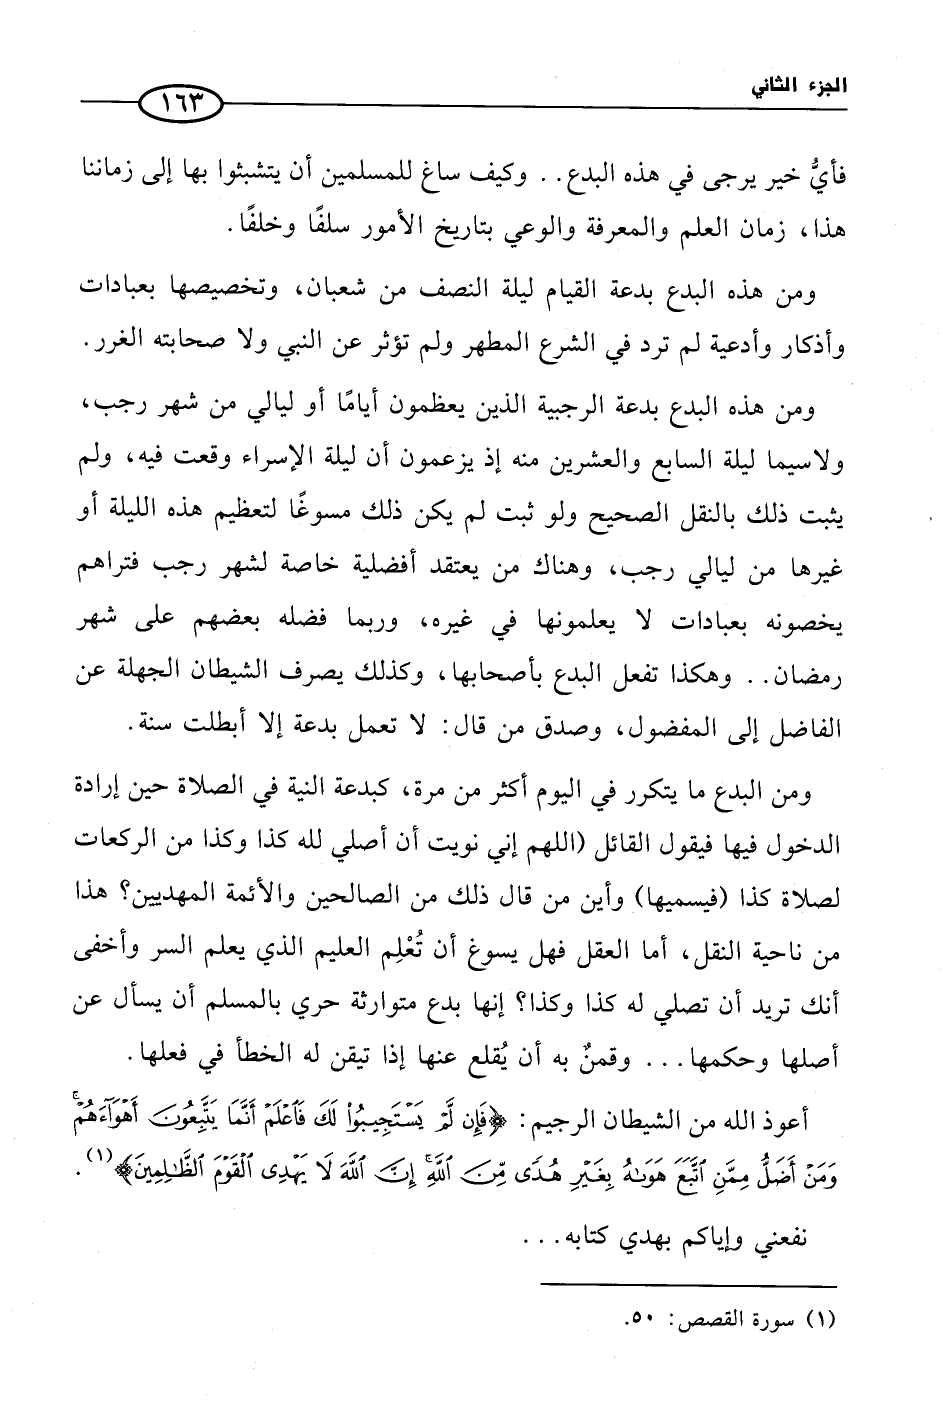 الجزء الثاني
١٦٣
فأيُّ خير يرجى في هذه البدع.. وكيف ساغ للمسلمين أن يتشبثوا بها إلى زماننا
هذا، زمان العلم والمعرفة والوعي بتاريخ الأمور سلفًا وخلفًا.
ومن هذه البدع بدعة القيام ليلة النصف من شعبان، وتخصيصها بعبادات
وأذكار وأدعية لم ترد في الشرع المطهر ولم تؤثر عن النبي ولا صحابته الغرر.
ومن هذه البدع بدعة الرجبية الذين يعظمون أيامًا أو ليالي من شهر رجب،
ولاسيما ليلة السابع والعشرين منه إذ يزعمون أن ليلة الإسراء وقعت فيه، ولم
يثبت ذلك بالنقل الصحيح ولو ثبت لم يكن ذلك مسوغًا لتعظيم هذه الليلة أو
غيرها من ليالي رجب، وهناك من يعتقد أفضلية خاصة لشهر رجب فتراهم
يخصونه بعبادات لا يعلمونها في غيره، وربما فضله بعضهم على شهر
رمضان.. وهكذا تفعل البدع بأصحابها، وكذلك يصرف الشيطان الجهلة عن
الفاضل إلى المفضول، وصدق من قال: لا تعمل بدعة إلا أبطلت سنة.
ومن البدع ما يتكرر في اليوم أكثر من مرة، كبدعة النية في الصلاة حين إرادة
الدخول فيها فيقول القائل (اللهم إني نويت أن أصلي لله كذا وكذا من الركعات
لصلاة كذا (فيسميها) وأين من قال ذلك من الصالحين والأئمة المهديين؟ هذا
من ناحية النقل، أما العقل فهل يسوغ أن تُعْلِم العليم الذي يعلم السر وأخفى
أنك تريد أن تصلي له كذا وكذا؟ إنها بدع متوارثة حري بالمسلم أن يسأل عن
أصلها وحكمها... وقمنٌ به أن يُقلع عنها إذا تيقن له الخطأ في فعلها.
أعوذ الله من الشيطان الرجيم: ﴿فَإِن لَّمْ يَسْتَجِيبُوا۟ لَكَ فَٱعْلَمْ أَنَّمَا يَتَّبِعُونَ أَهْوَآءَهُمْ ۚ
وَمَنْ أَضَلُّ مِمَّنِ ٱتَّبَعَ هَوَىٰهُ بِغَيْرِ هُدًى مِّنَ ٱللَّهِ ۚ إِنَّ ٱللَّهَ لَا يَهْدِى ٱلْقَوْمَ ٱلظَّٰلِمِينَ﴾(١).
نفعني وإياكم بهدي كتابه...
(١) سورة القصص: ٥٠.